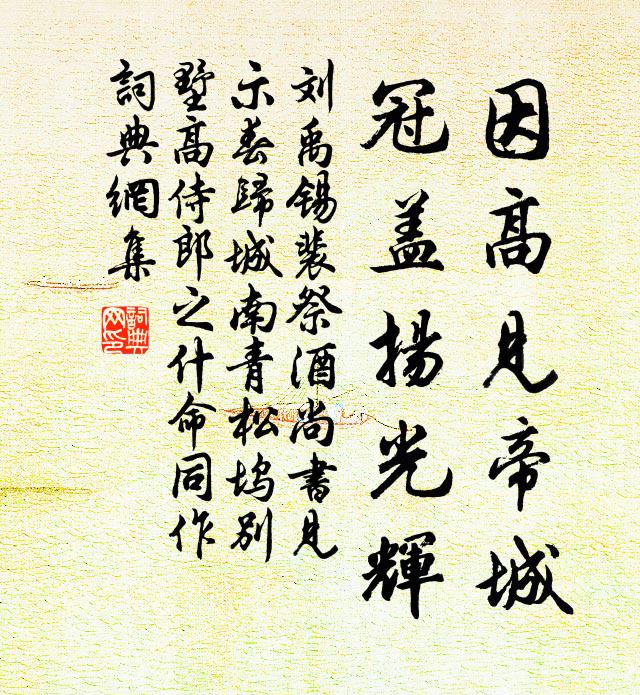 因高見帝城
冠盖揚光輝
刘禹錫裴祭酒尚書見
示春歸城南青松坞别
墅高侍郎之什命同作
詞典網集
詞典
网印